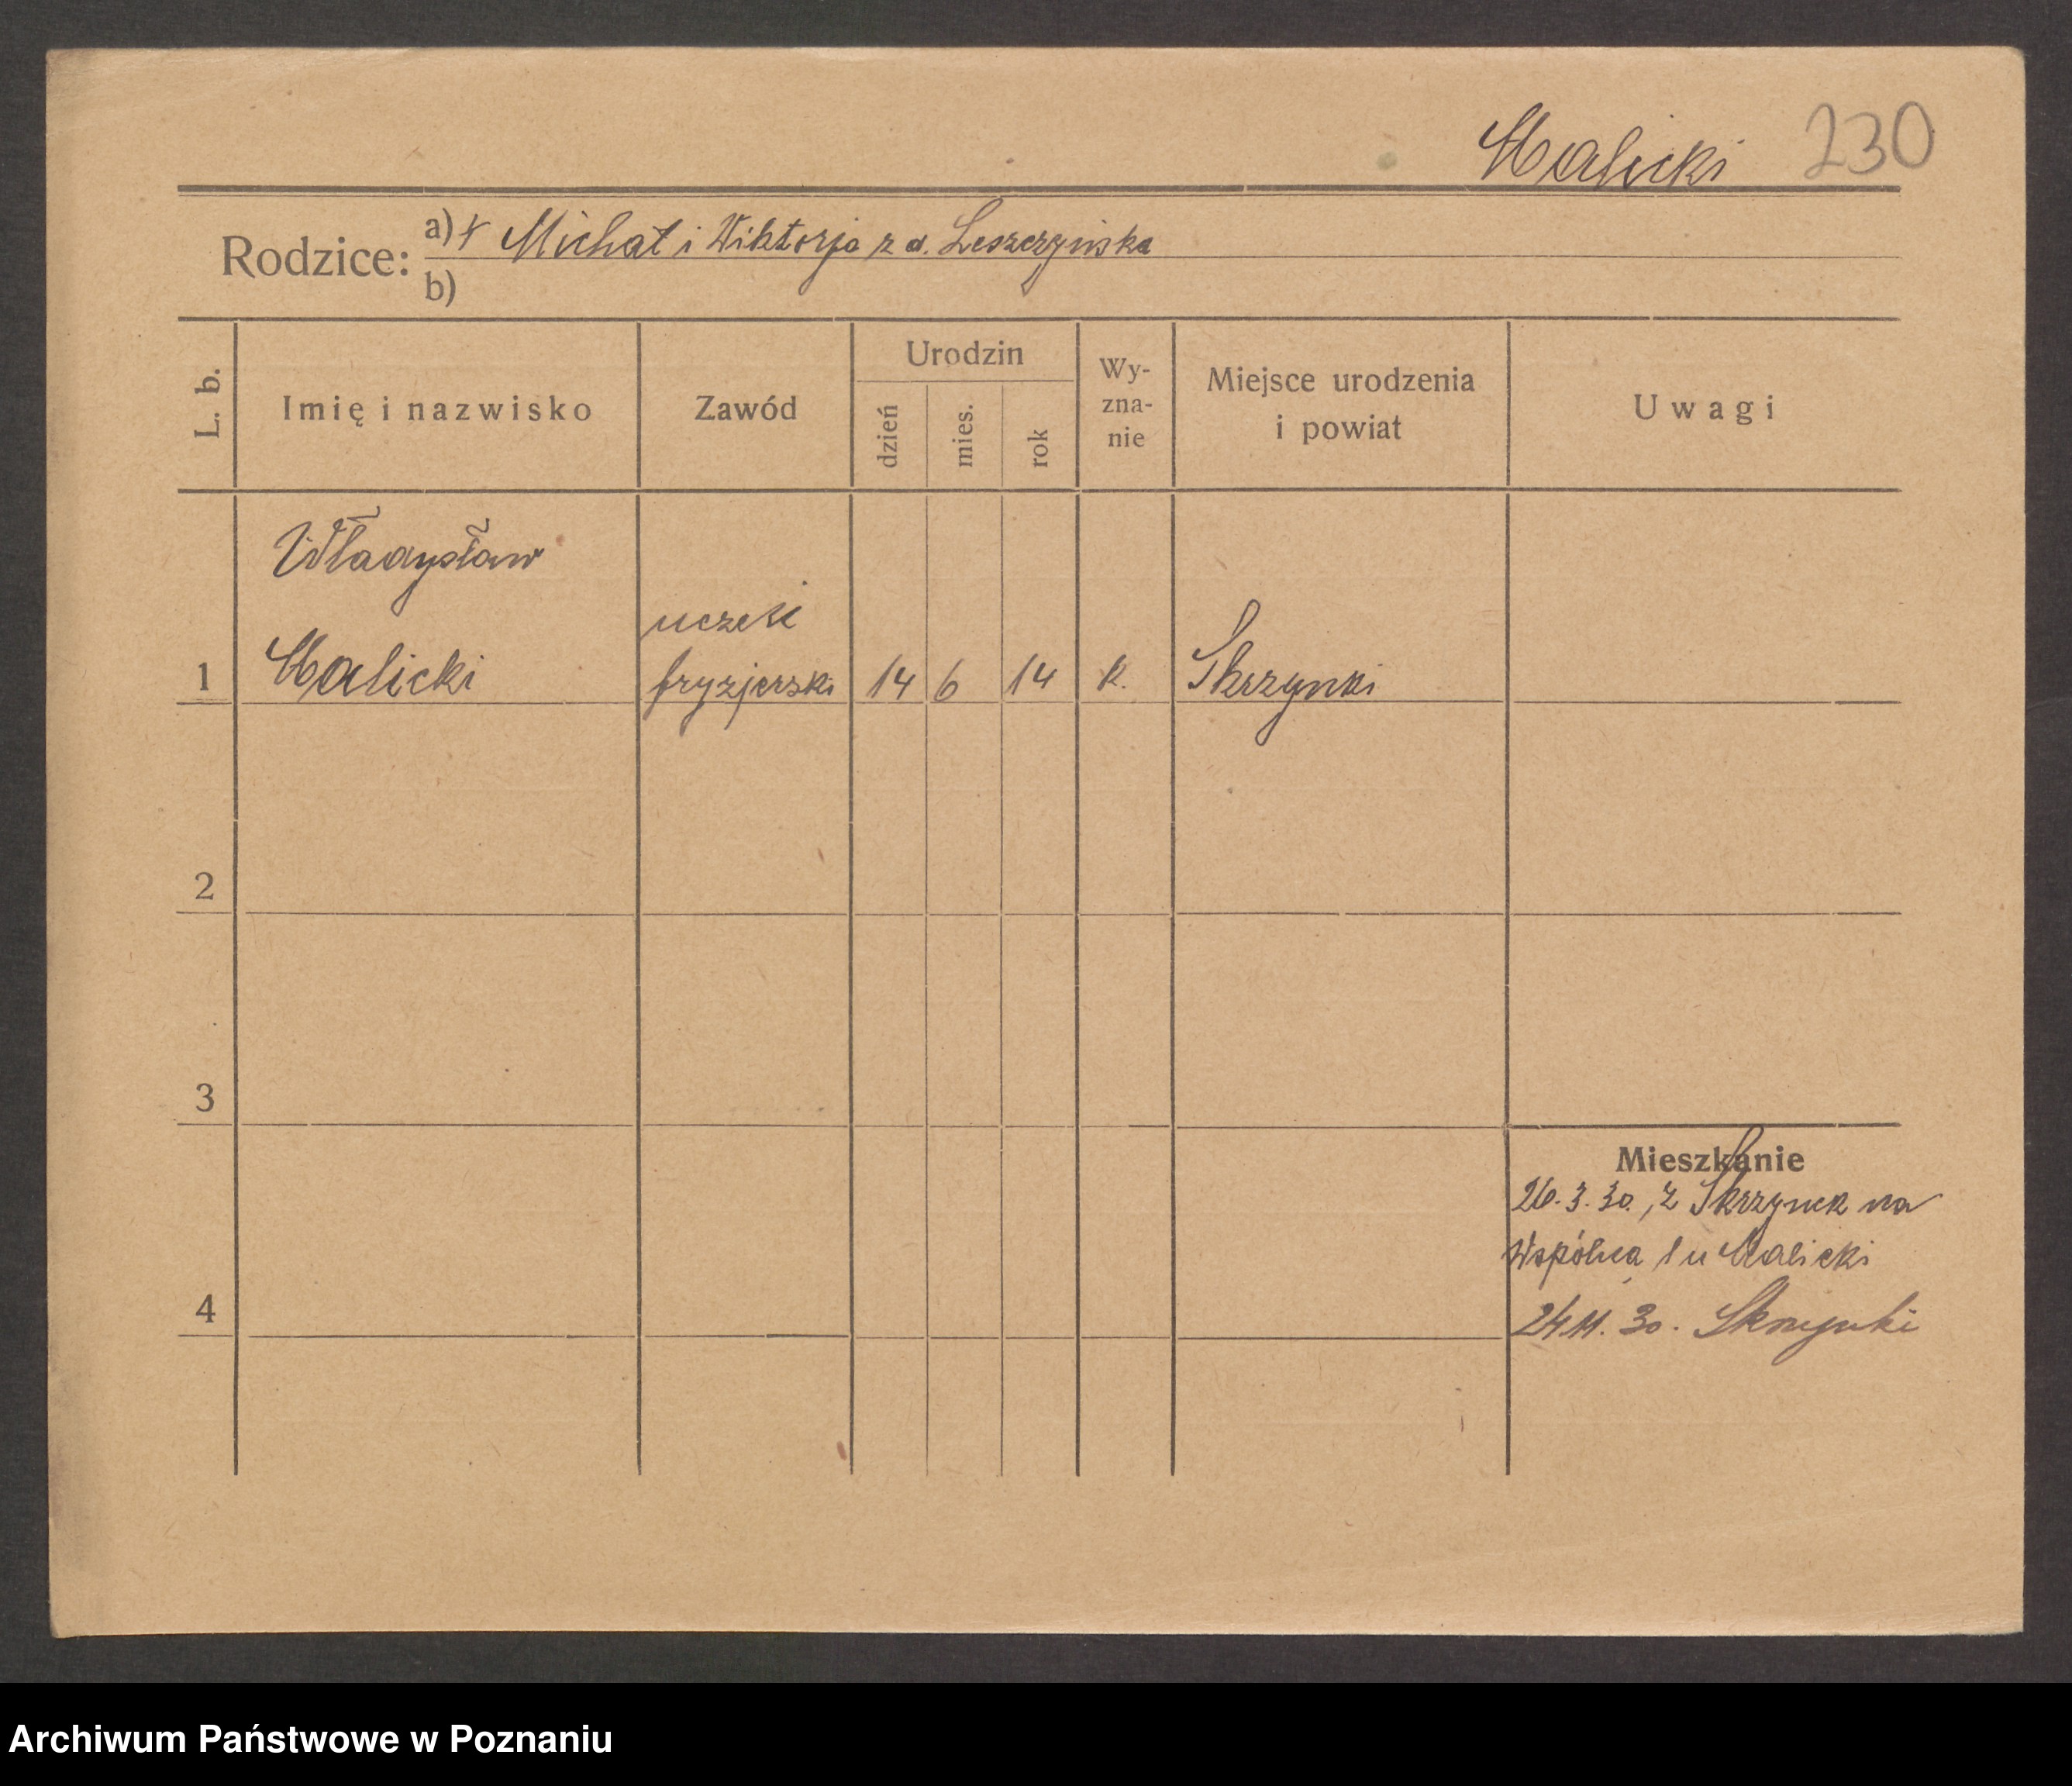 Malicki 230
Rodzice: a) † Michał i Wiktorja z d. Leszczyńska
b)
L. b. Imię i nazwisko Zawód Urodzin dzień mies. rok Wy-zna-nie Miejsce urodzenia i powiat Uwagi
Władysław
uczeń
1 Malicki fryzjerski 14 6 14 k. Skrzynki
2
3
Mieszkanie
26.3.30., z Skrzynek na
Wspólna 1 u Malicki
4
24 11. 30. Skrzynki
Archiwum Państwowe w Poznaniu